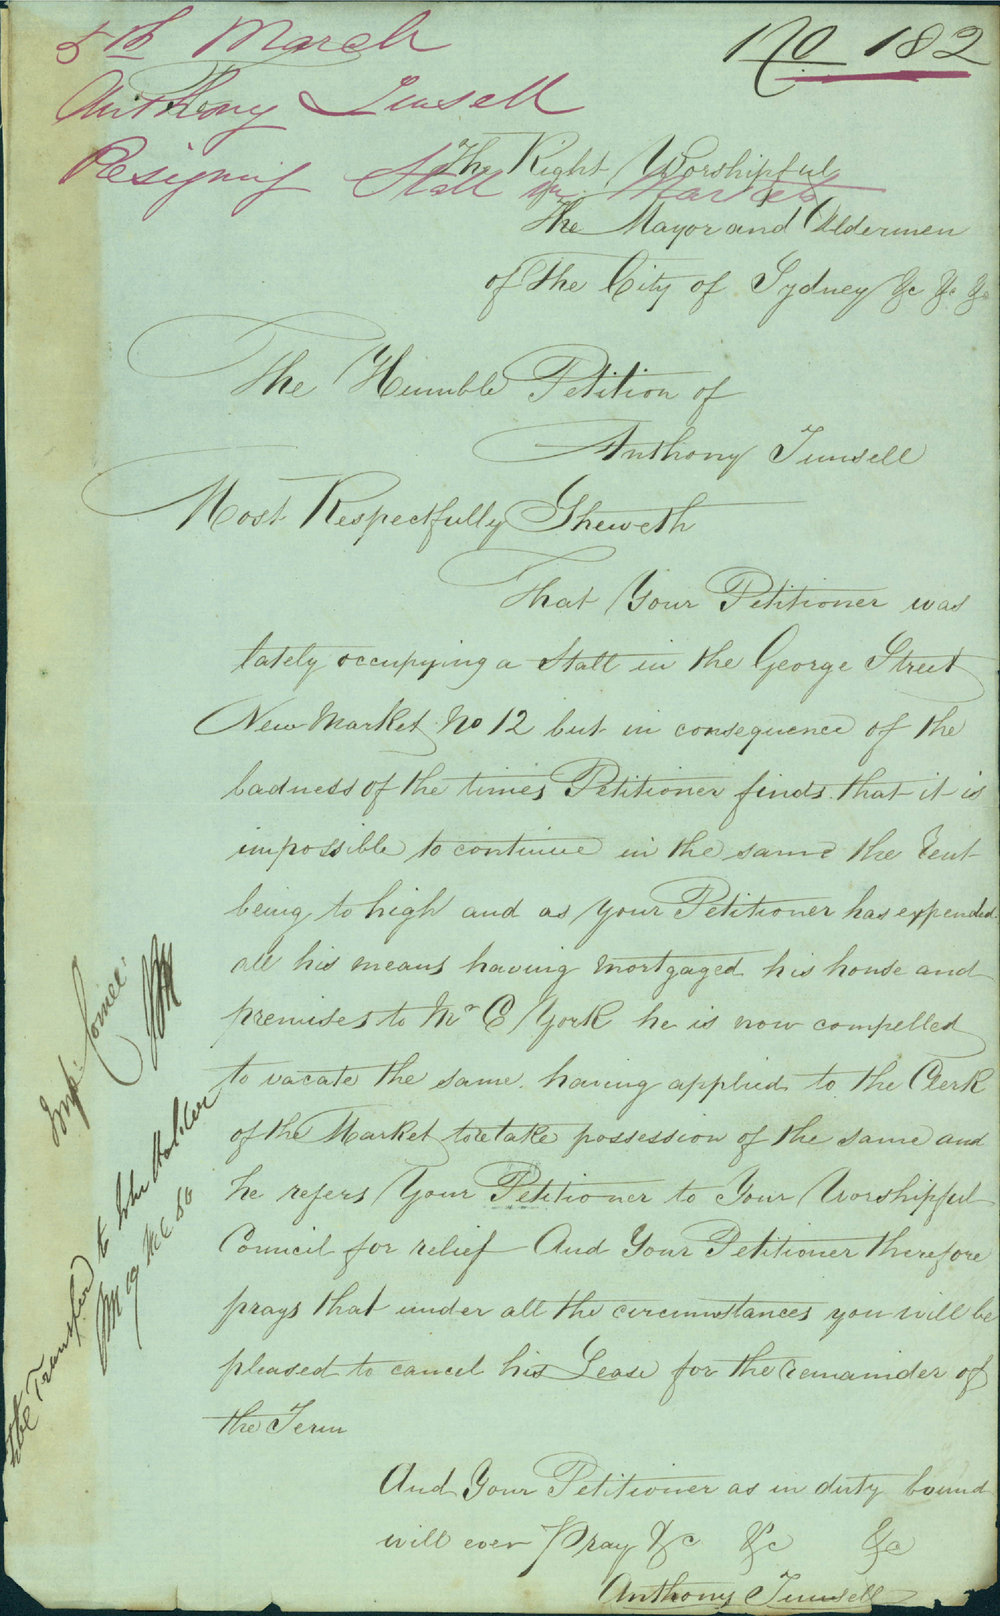 5th March
No 182
Anthony Tunsell
Resigning Stall in Market
The Right Worshipful
The Mayor and Aldermen
of The City of Sydney &c &c &c
The Humble Petition of
Anthony Tunsell
Most Respectfully Sheweth
That Your Petitioner was
lately occupying a Stall in the George Street
New Market No 12 but in consequence of the
badness of the times Petitioner finds that it is
impossible to continue in the same the rent
being to high and as your Petitioner has expended
all his means having mortgaged his house and
premises to Mr C York he is now compelled
to vacate the same having applied to the Clerk
of the Market to retake possession of the same and
he refers Your Petitioner to Your Worshipful
Council for relief And Your Petitioner therefore
prays that under all the circumstances you will be
pleased to cancel his Lease for the remainder of
the Term
And Your Petitioner as in duty bound
will ever Pray &c &c &c
Anthony Tunsell
Transfer to